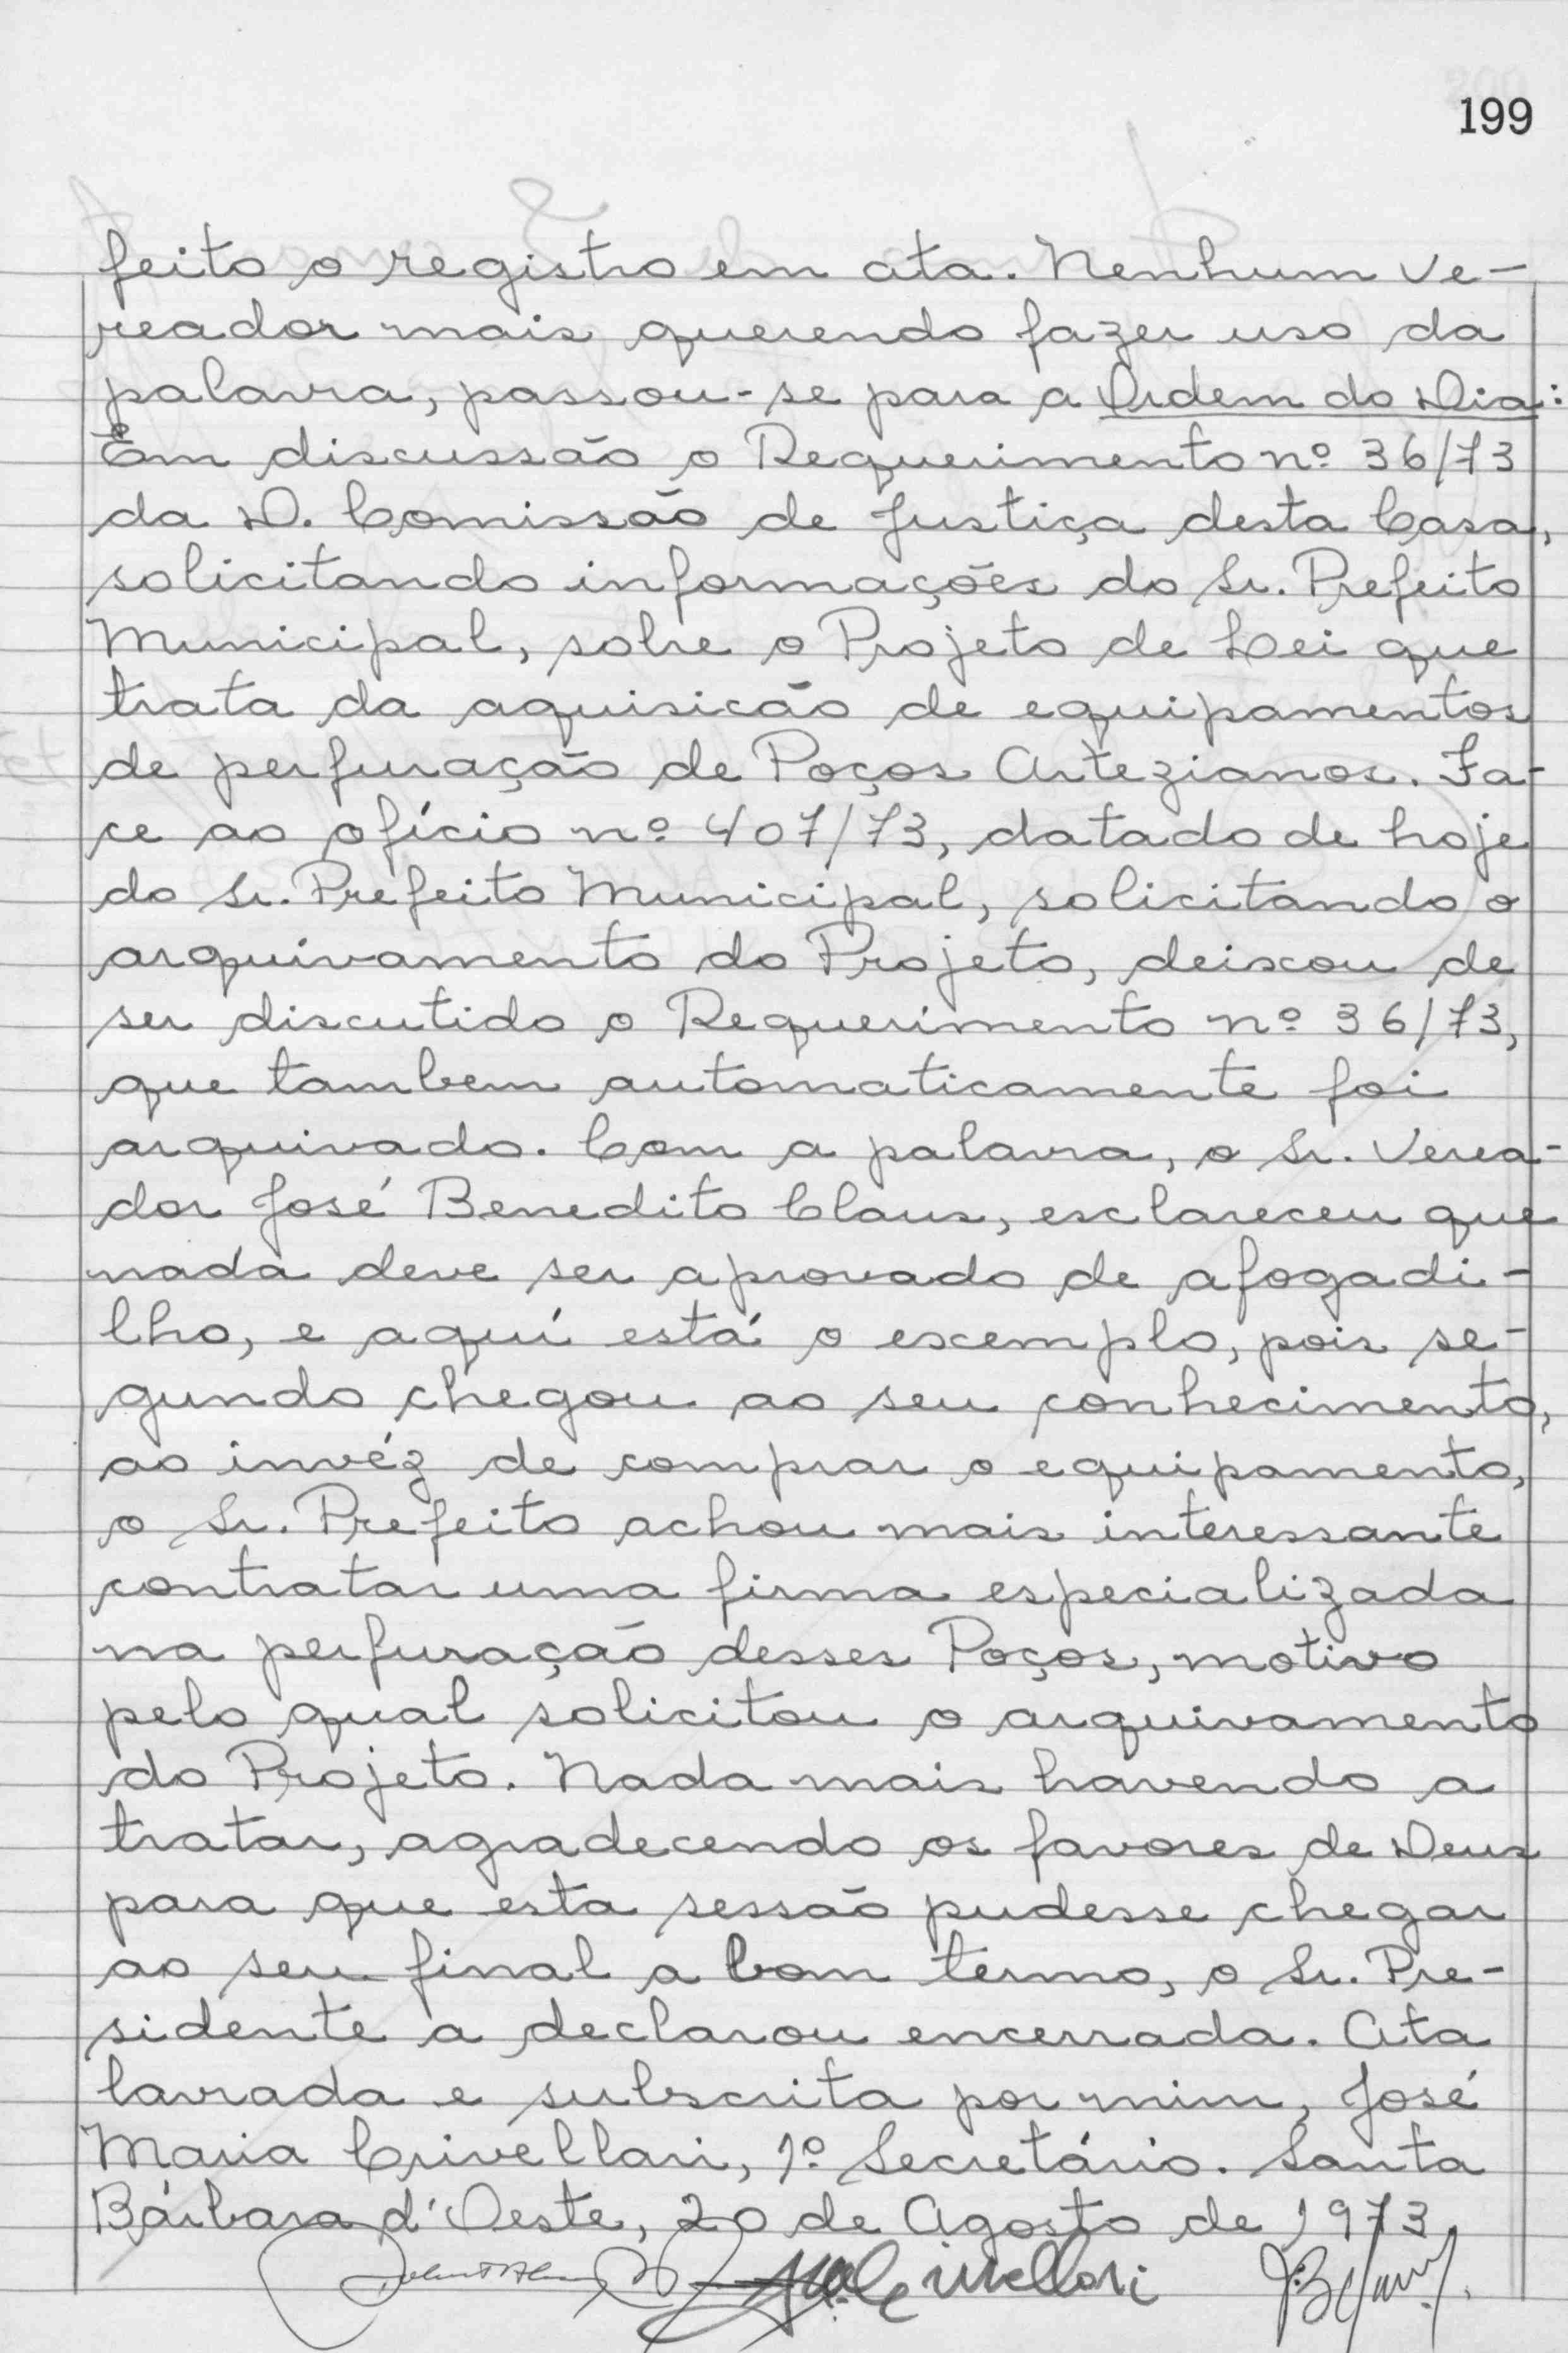 199
feito o registro em ata. Nenhum ve-
reador mais querendo fazer uso da
palavra, passou-se para a Ordem do Dia:
Em discussão o Requerimento nº 36/73
da D. Comissão de Justiça desta Casa,
solicitando informações do Sr. Prefeito
Municipal, sobre o Projeto de Lei que
trata da aquisicão de equipamentos
de perfuração de Poços Artezianos. Fa-
ce ao ofício nº 407/73, datado de hoje
do Sr. Prefeito Municipal, solicitando o
arquivamento do Projeto, deixou de
ser discutido o Requerimento nº 36/73,
que tambem automaticamente foi
arquivado. Com a palavra, o Sr. Verea-
dor José Benedito Claus, esclareceu que
nada deve ser aprovado de afogadi-
lho, e aquí está o exemplo, pois se-
gundo chegou ao seu conhecimento,
ao invéz de comprar o equipamento,
o Sr. Prefeito achou mais interessante
contratar uma firma especializada
na perfuração desses Poços, motivo
pelo qual solicitou o arquivamento
do Projeto. Nada mais havendo a
tratar, agradecendo os favores de Deus
para que esta sessão pudesse chegar
ao seu final a bom termo, o Sr. Pre-
sidente a declarou encerrada. Ata
lavrada e subscrita por mim, José
Maria Crivellari, 1º Secretário. Santa
Bárbara d'Oeste, 20 de Agosto de 1973